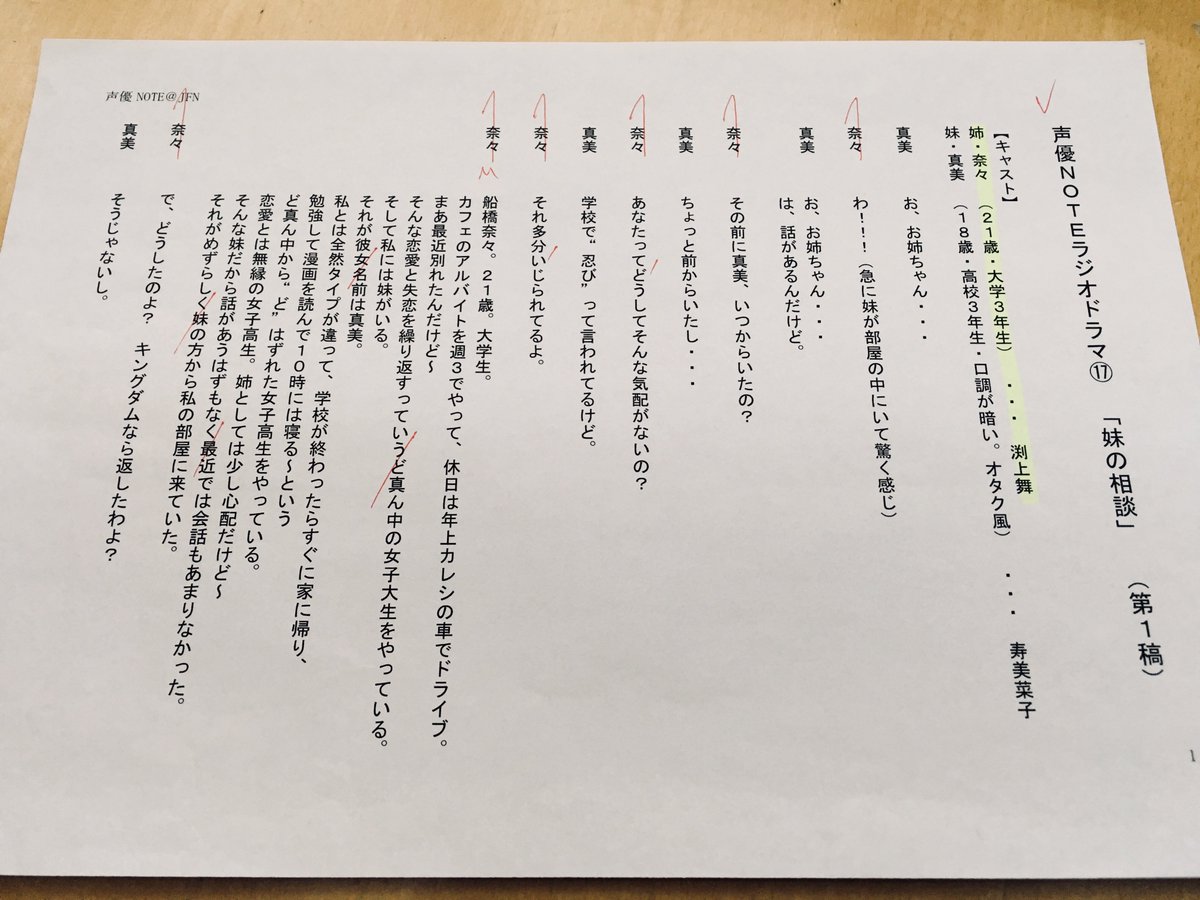 声優 NOTE@JFN
声優NOTEラジオドラマ⑰ 「妹の相談」 (第1稿)
【キャスト】
姉・奈々 (21歳・大学3年生) ・・・ 渕上舞
妹・真美 (18歳・高校3年生・口調が暗い。オタク風) ・・・ 寿美菜子
真美 お、お姉ちゃん・・・
奈々 わ!!!(急に妹が部屋の中にいて驚く感じ)
真美 お、お姉ちゃん・・・
は、話があるんだけど。
奈々 その前に真美、いつからいたの?
真美 ちょっと前からいたし・・・
奈々 あなたってどうしてそんな気配がないの?
真美 学校で“忍び”って言われてるけど。
奈々 それ多分いじられてるよ。
奈々 M 船橋奈々。21歳。大学生。
カフェのアルバイトを週3でやって、休日は年上カレシの車でドライブ。
まあ最近別れたんだけど~
そんな恋愛と失恋を繰り返すっていうど真ん中の女子大生をやっている。
そして私には妹がいる。
それが彼女名前は真美。
私とは全然タイプが違って、学校が終わったらすぐに家に帰り、
勉強して漫画を読んで10時には寝る~という
ど真ん中から“ど”はずれた女子高生をやっている。
恋愛とは無縁の女子高生。姉としては少し心配だけど~
そんな妹だから話があうはずもなく最近では会話もあまりなかった。
それがめずらしく妹の方から私の部屋に来ていた。
奈々 で、どうしたのよ? キングダムなら返したわよ?
真美 そうじゃないし。
1